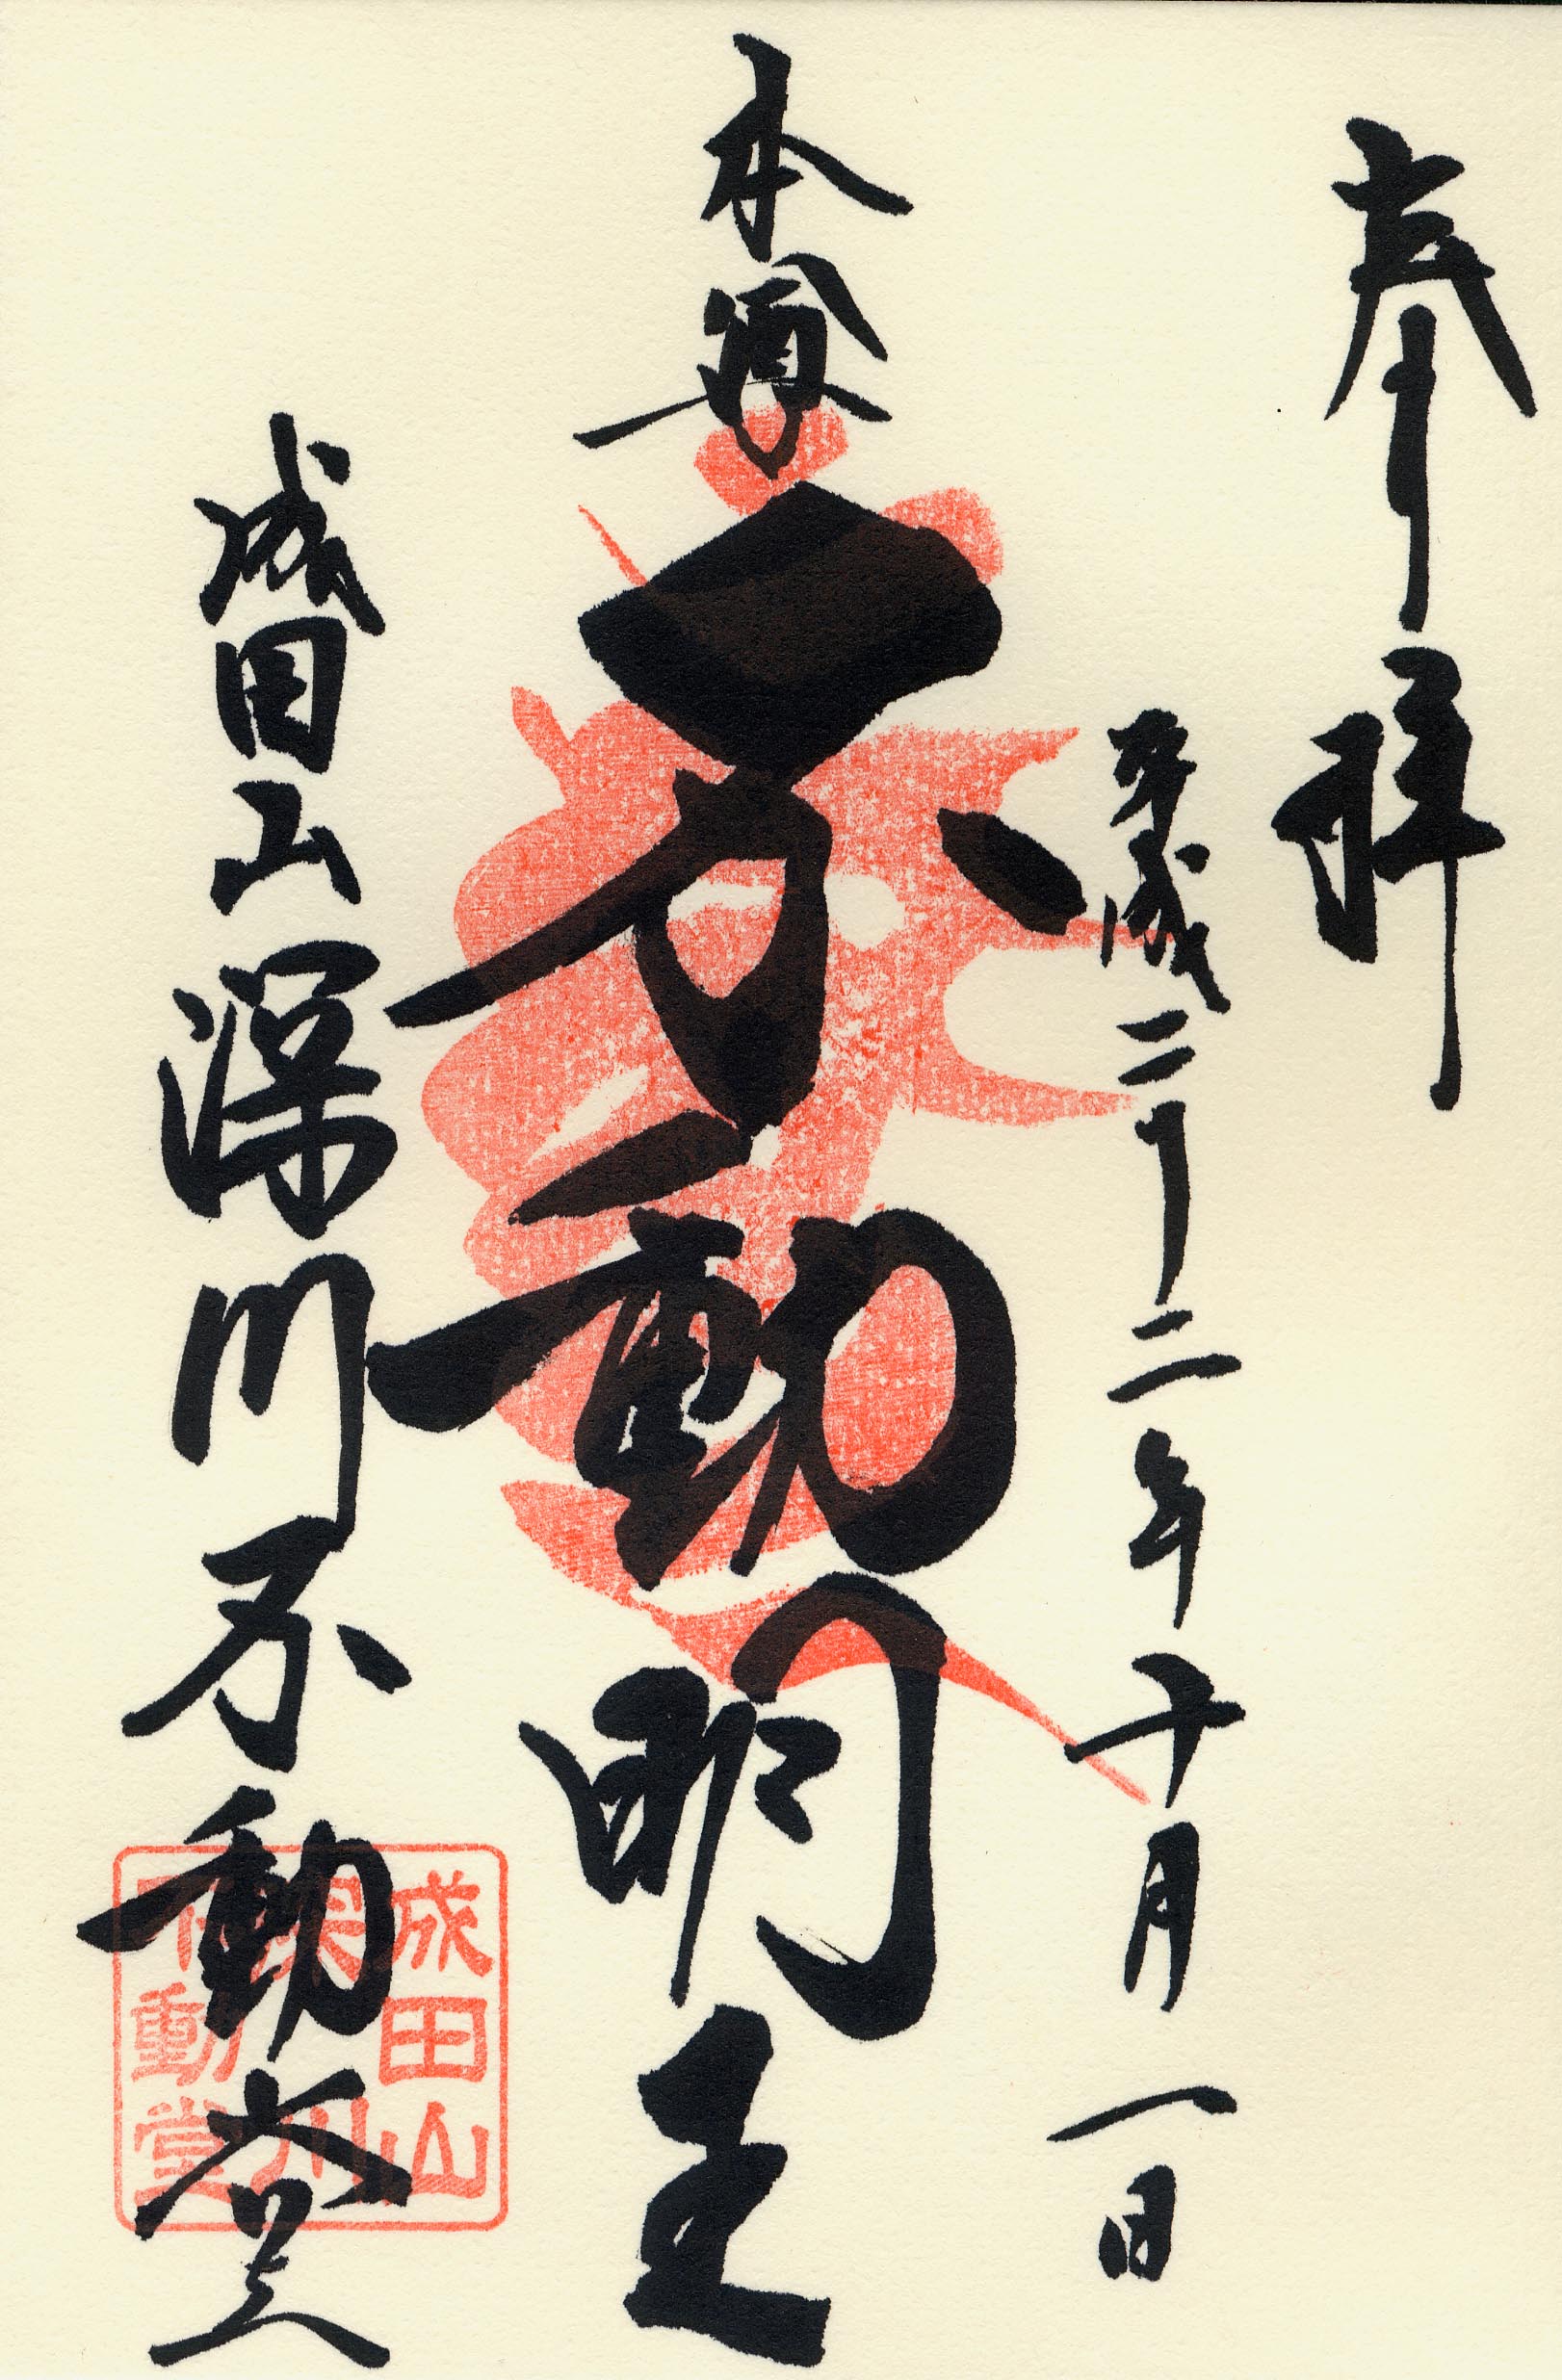 奉拝
平成二十二年十月一日
本尊
不動明王
成田山深川不動堂
成田山
深川
不動堂